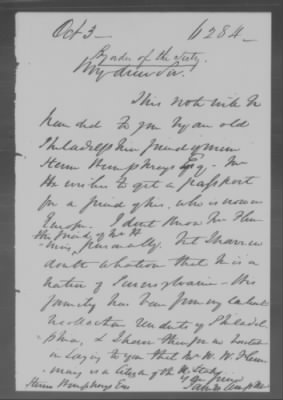 Oct 3 - 6284 -
By order of the Secty.
My dear Sir.
This note will be
handed to you by an old
Philadelphia friend of mine
Henn Humphreys Esq - Mr
H wishes to get a passport
for a friend of his, who is now in
Europe. I don't know Mr
the friend of Mr H
personally. but I have no
doubt about him that he is a
native of Pennsylvania - His
family has been from my earliest
recollection residents of Philadel
phia, & I have therefore
in saying to you that Mr W. W.
is a citizen of the U. States
Yr friend
Henn Humphreys Esq